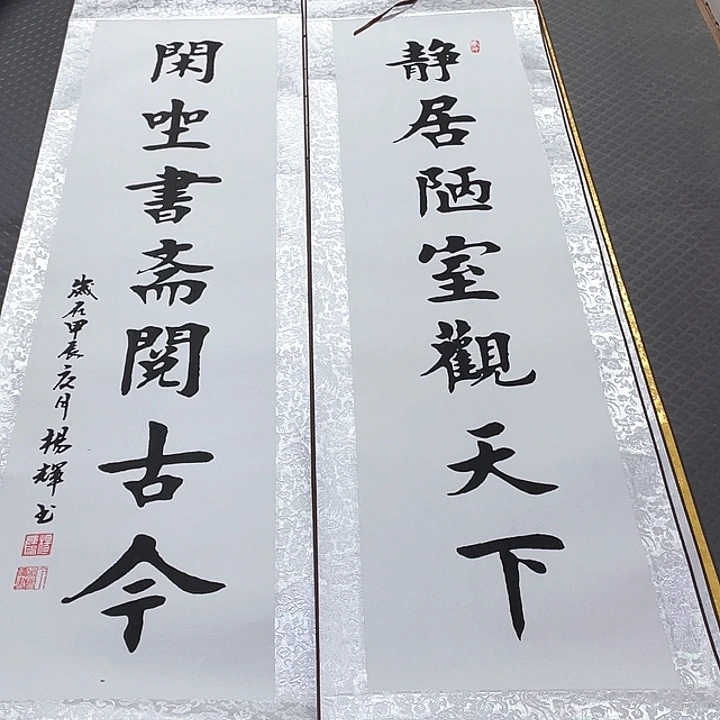 静居陋室觀天下
閑坐書斋閱古今
歲在甲辰之月楊輝书